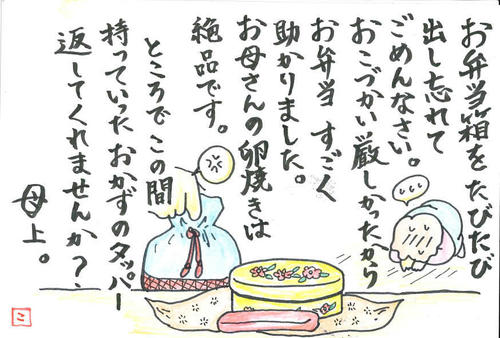 お弁当箱をたびたび
出し忘れて
ごめんなさい。
おこづかい厳しかったから
お弁当 すごく
助かりました。
お母さんの卵焼きは
絶品です。
ところでこの間
持っていったおかずのタッパー
返してくれませんか?、
母上。
こ